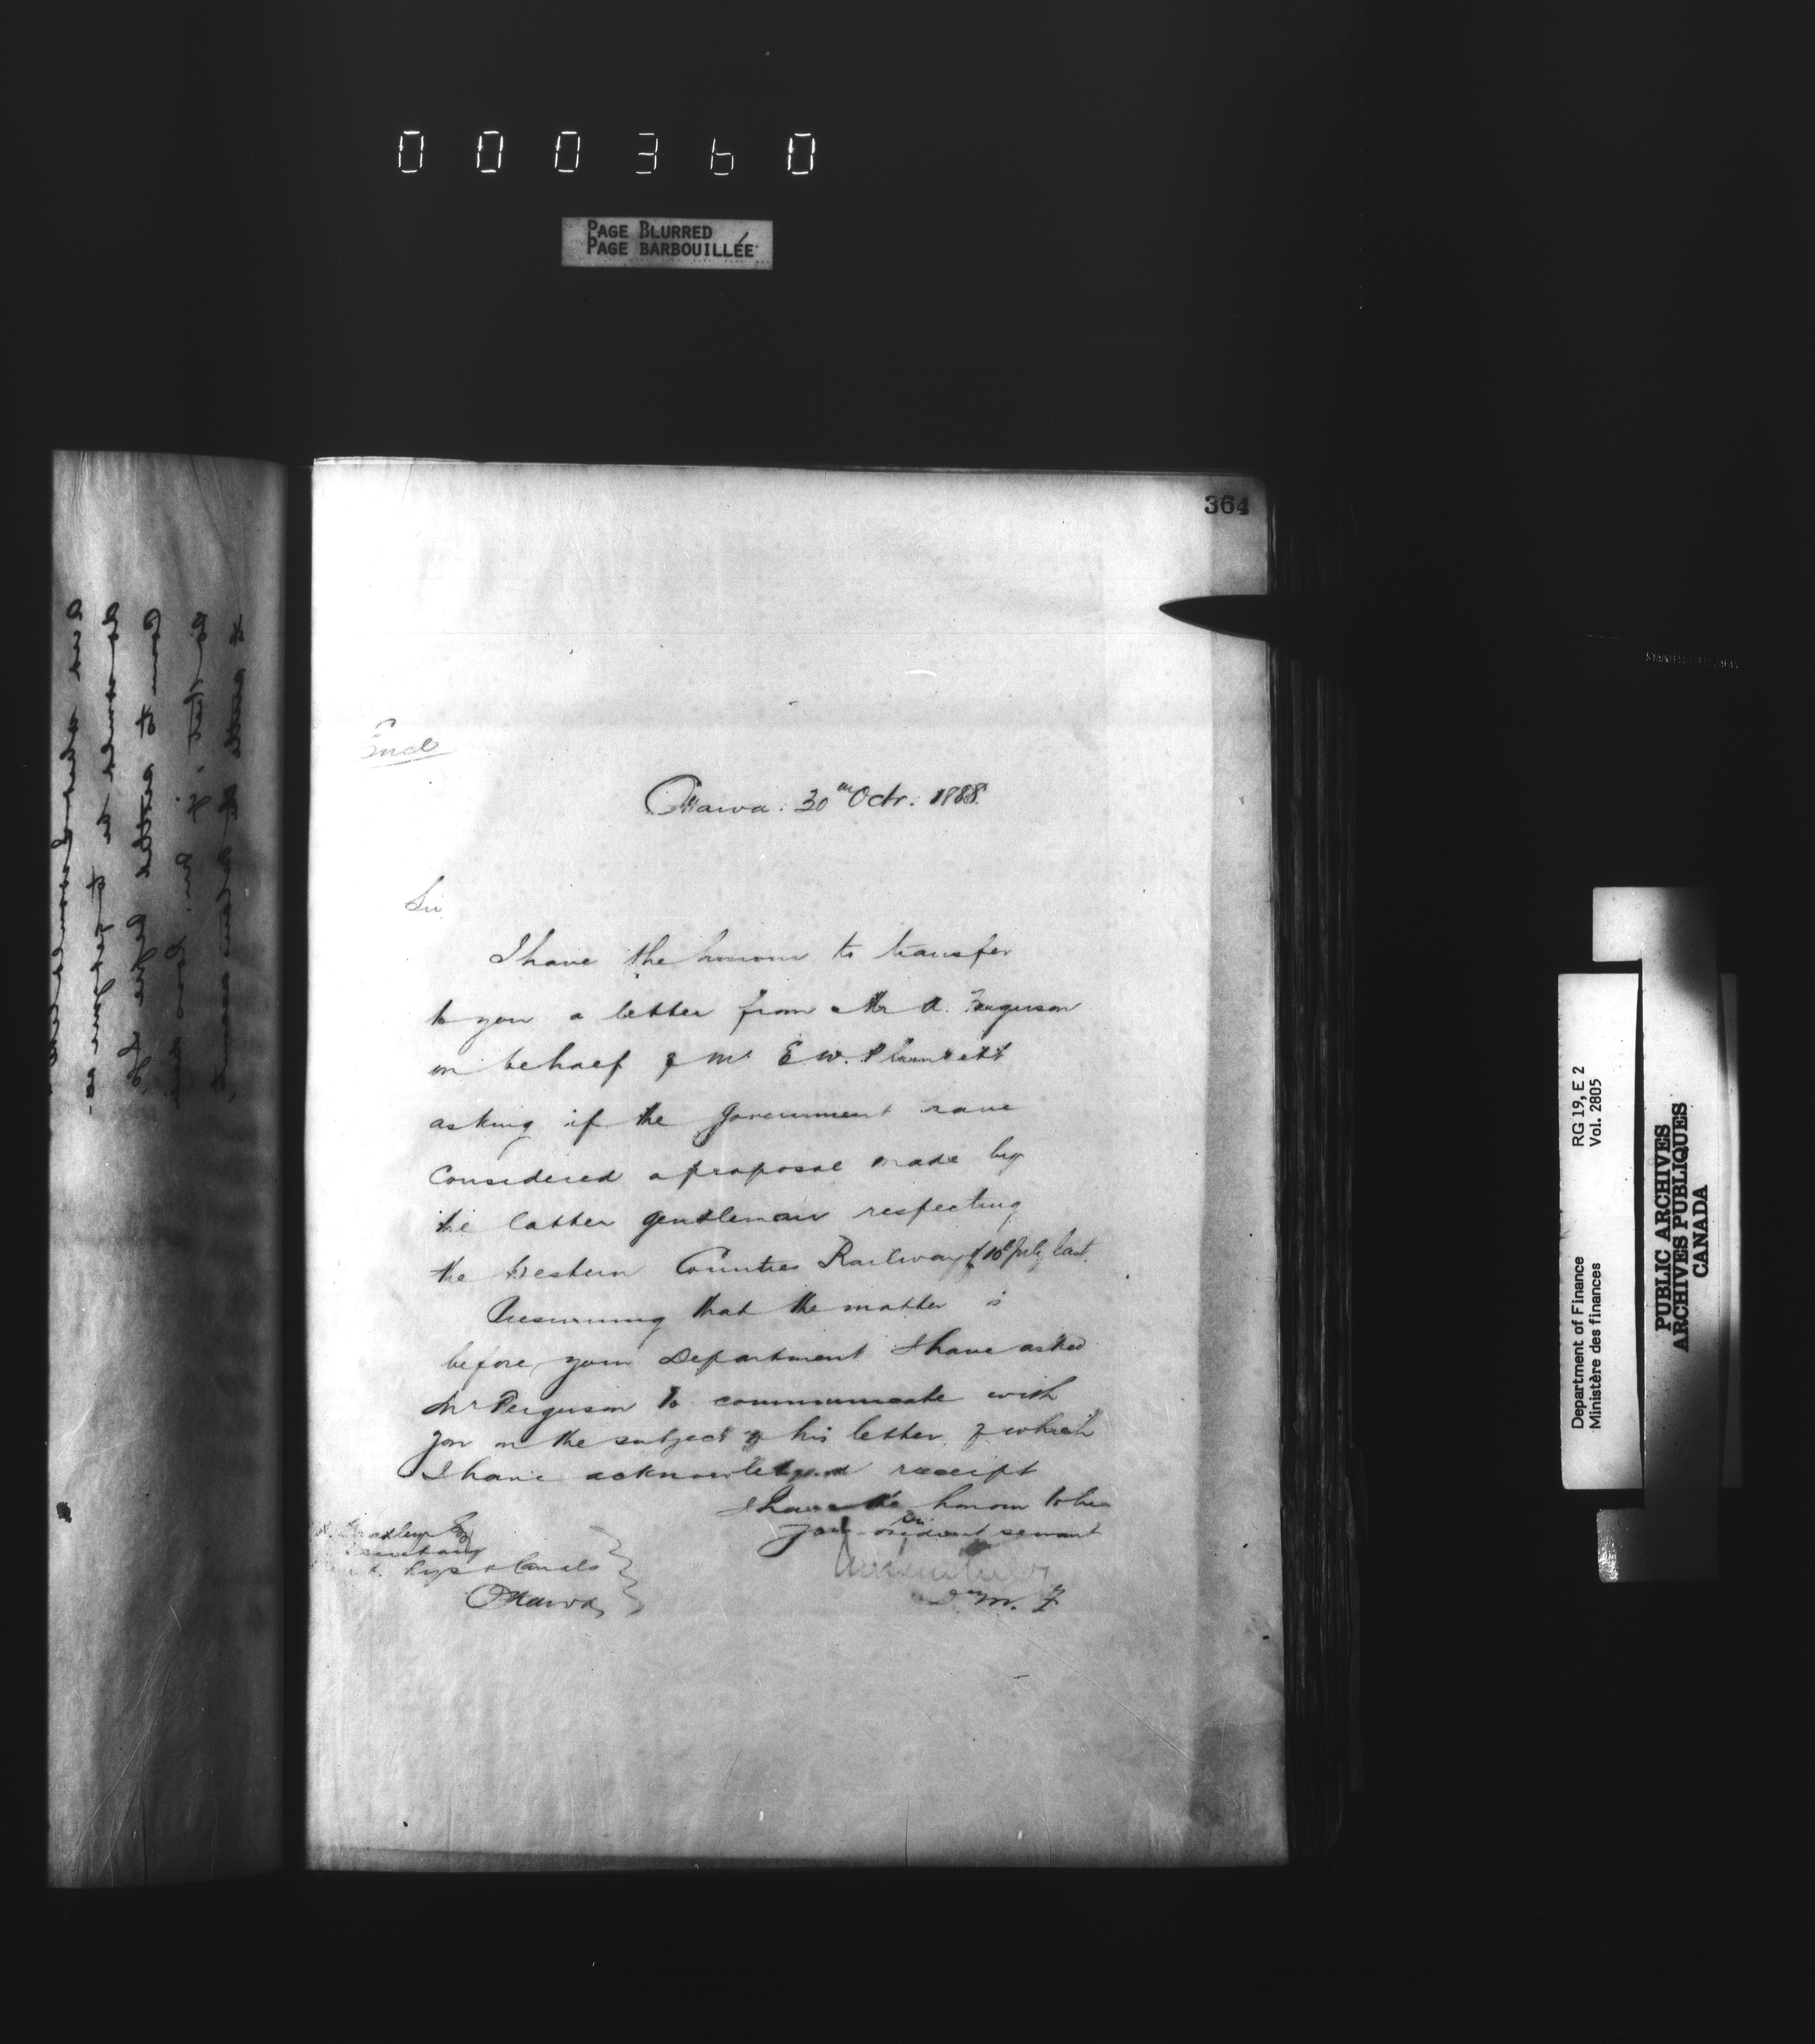 000360
PAGE BLURRED
PAGE BARBOUILLÉE
364
Encl
Ottawa. 30th Octr. 1888.
Sir
I have the honour to transfer
to you a letter from Mr A. Ferguson
on behalf of Mr E W. Plunkett
asking if the Government have
considered a proposal made by
the latter gentleman respecting
the Western Counties Railway of 10th July last.
Presuming that the matter is
before your Department I have asked
Mr Ferguson to communicate with
you on the subject of his letter of which
I have acknowledged receipt
I have the honour to be
Sir
Your obedient servant
D.M. F
Bradley Esq
Secretary
Rys & Canals
Ottawa
STAINLESS STEEL
Department of Finance RG 19, E 2
Ministère des finances Vol. 2805
PUBLIC ARCHIVES
ARCHIVES PUBLIQUES
CANADA